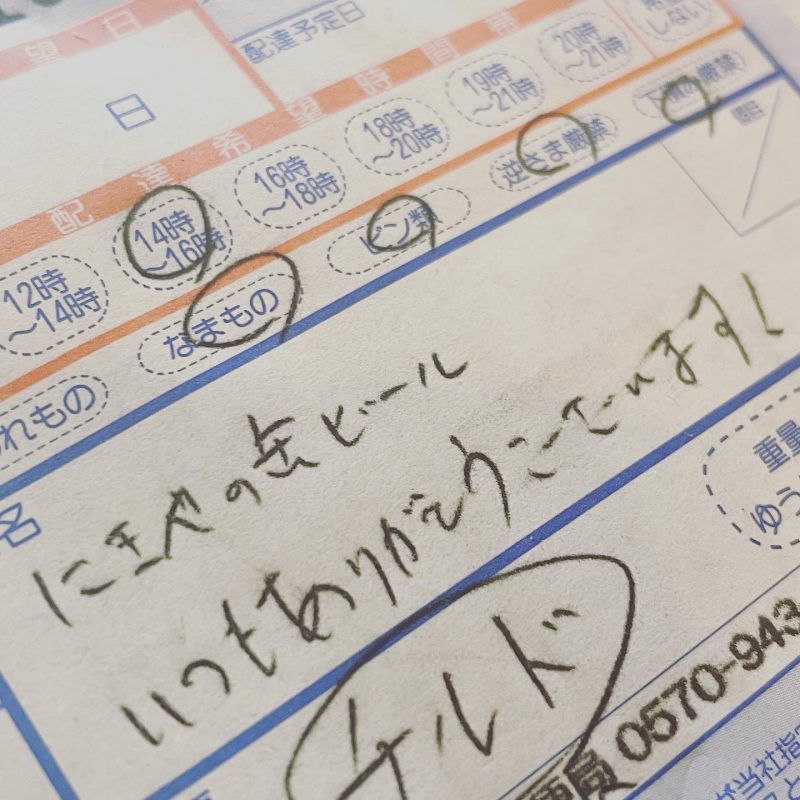 望 日
配達予定日
日
配達希望時間帯
12時～14時
14時～16時
16時～18時
18時～20時
19時～21時
20時～21時
しない
れもの
なまもの
ビン類
逆さま厳禁
下積み厳禁
名
にきやの缶ビール
いつもありがとうございます!
チルド
重量
ゆう
0570-943
が当社指定